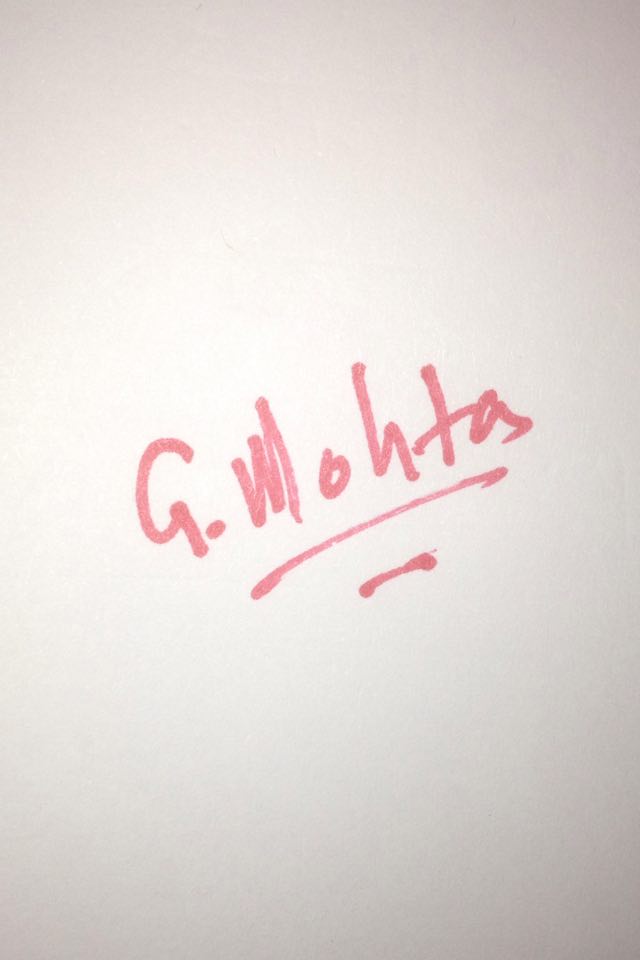 G. Mohta